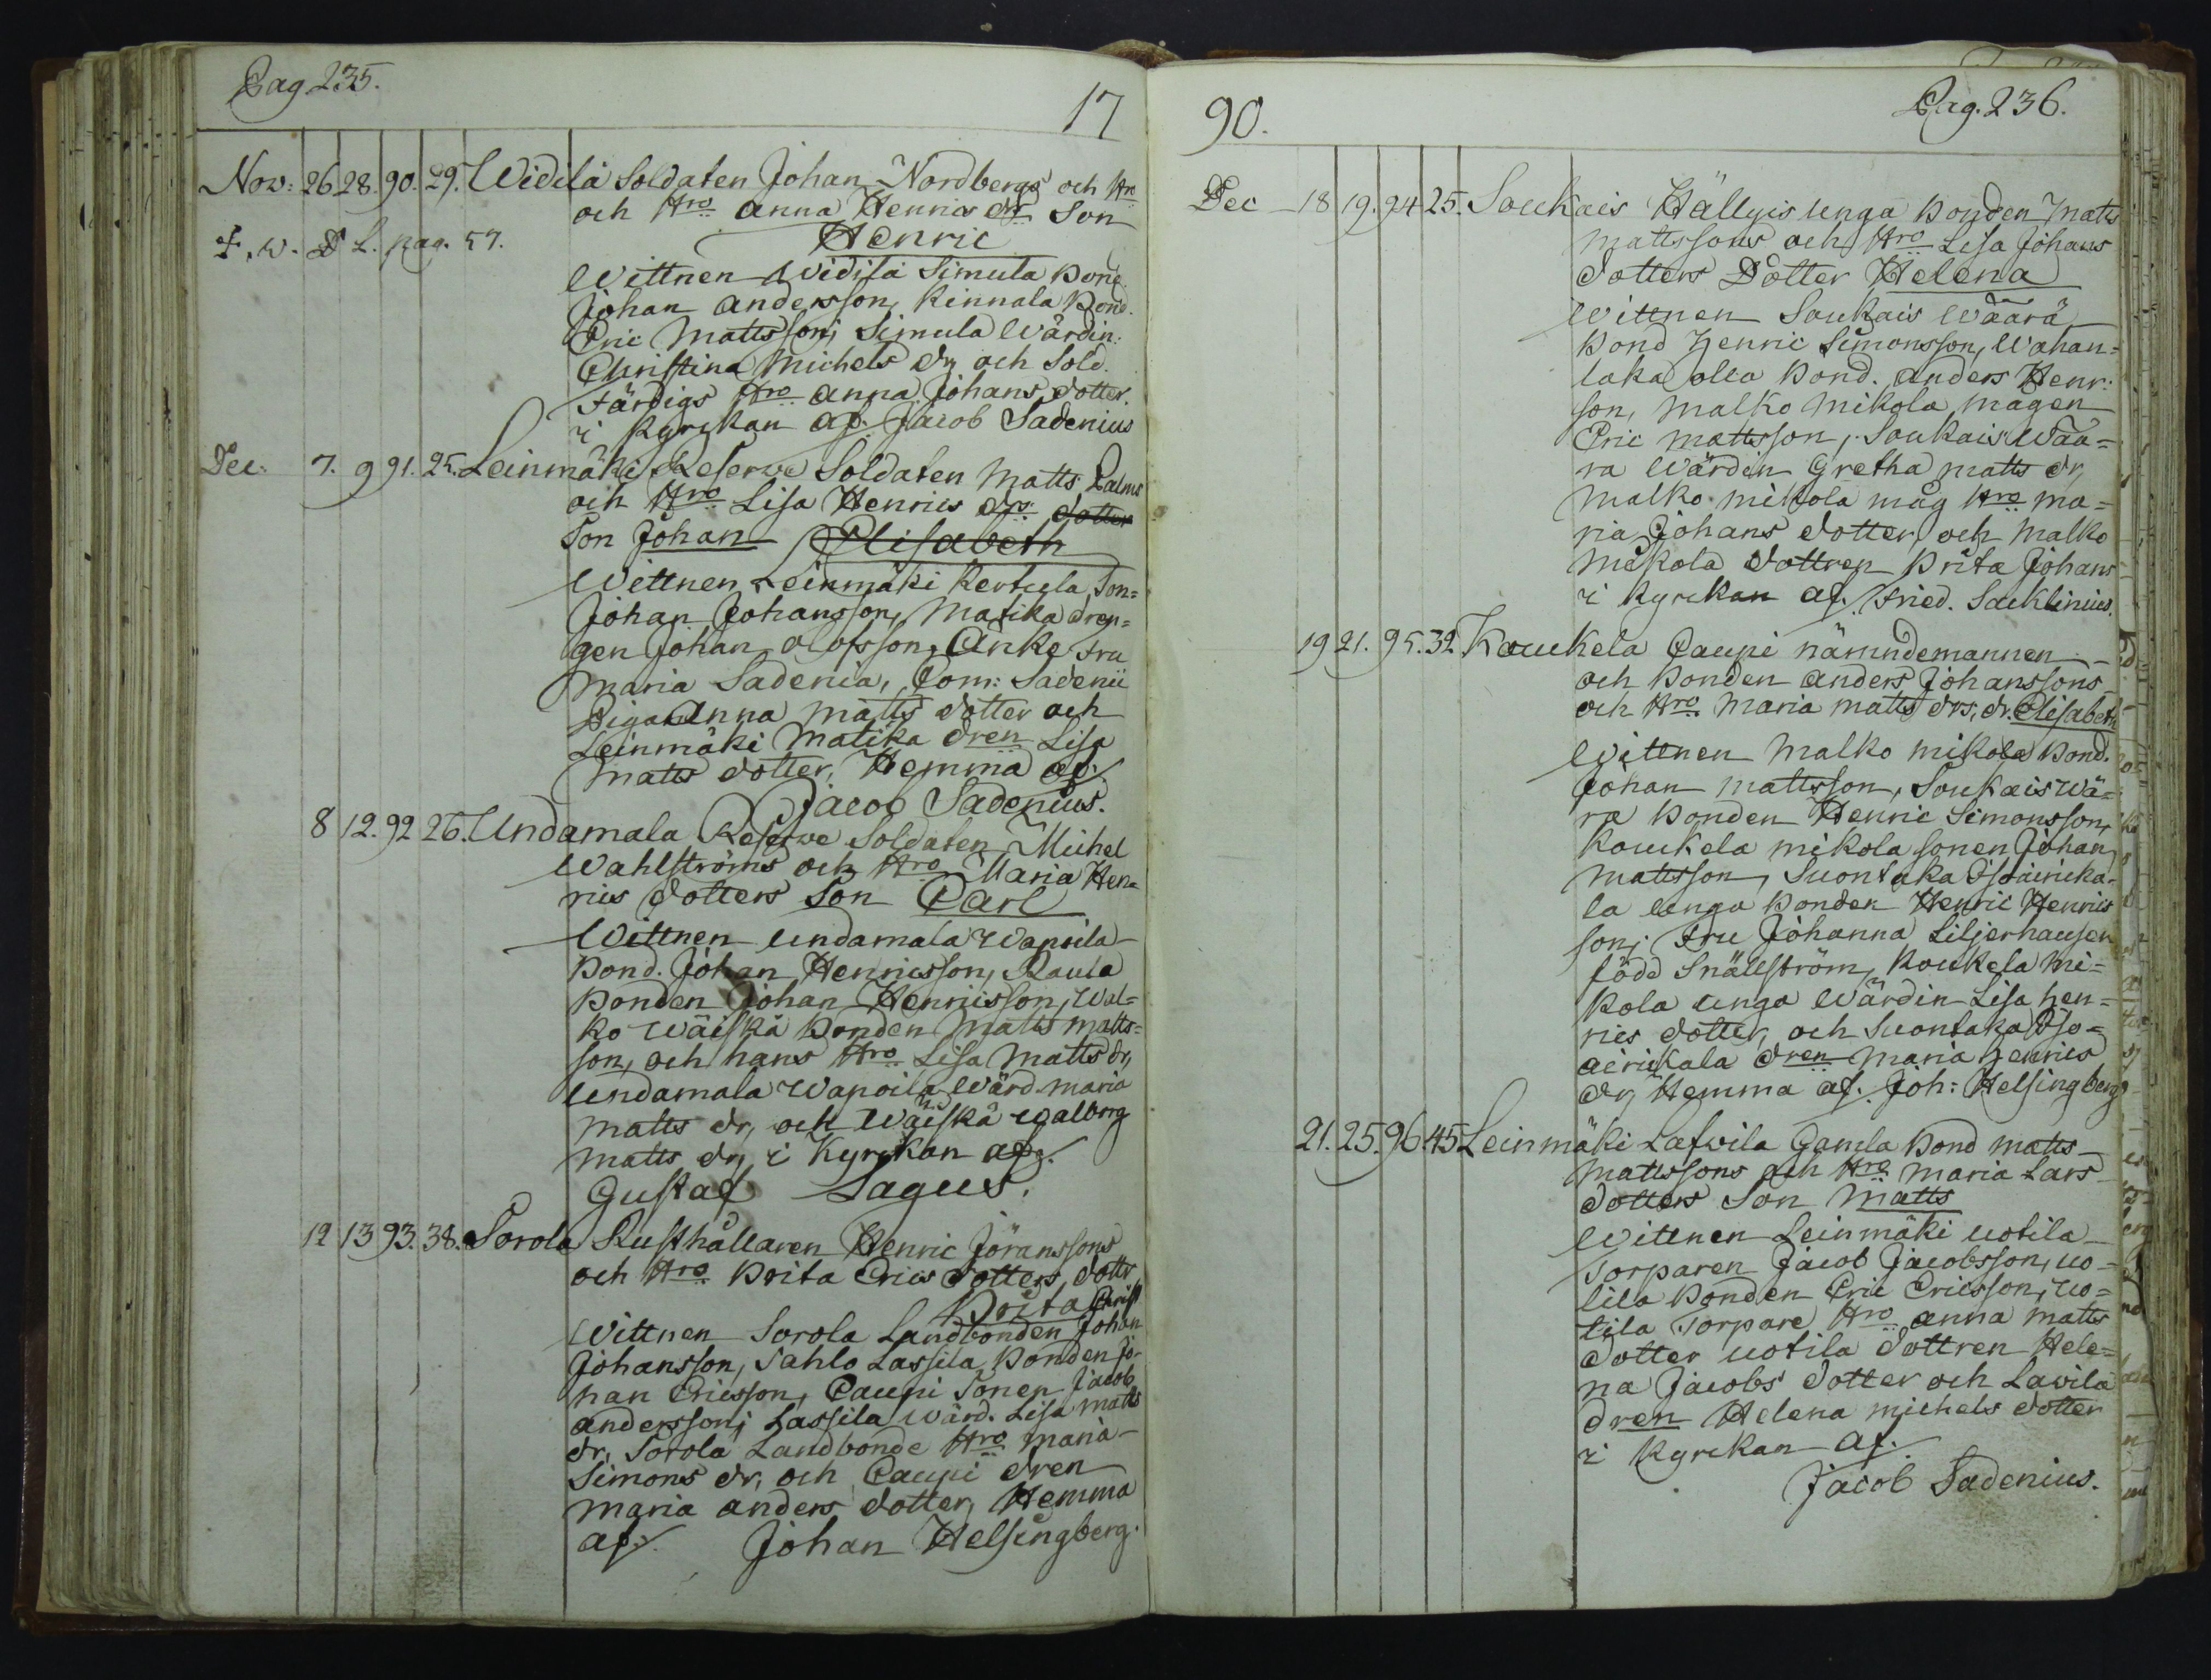 Pag. 235.
17
Nov: 26 28. 90. 29. Widilä Soldaten Johan Nordbergs och Hro
och Hro Anna Henrics dr Son
Henric
F. w. D L. pag. 57.
Wittnen Widilä Simula Bond.
Johan Andersson, Kinnala Bond.
Eric Mattsson; Simula Wärdin:
Christina Michels dr, och Sold.
Färdigs Hro Anna Johans dotter.
i Kyrckan af. Jacob Sadenius
Dec: 7. 9 91. 25. Leinmäki Reserve Soldaten Matts Palms
och Hro Lisa Henrics drs dotter
Son Johan Elisabeth
Wittnen Leinmäki Kertula Son=
Johan Johansson, Matika dren=
gen Johan Olofsson, Änke Fru
Maria Sadenia, Com: Sadenii
Pigan Anna Matts dotter och
Leinmäki Matika dren Lisa
Matts dotter, Hemma af.
Jacob Sadenius.
8 12. 92 26. Undamala Reserve Soldaten Michel
Wahlströms och Hro Maria Hen=
rics dotters Son Carl
Wittnen Undamala Wapoila
Bond. Johan Henricsson, Raula
Bonden Johan Henricsson, Wal=
ko Wäiskä Bonden Matts Matts=
son, och hans Hro Lisa Matts dr,
Undamala Wapoila Wärd. Maria
Matts dr, och Wäiskä Walborg
Matts dr, i Kyrckan af.
Gustaf Lagus.
12 13 93. 38. Sorola Rusthållaren Henric Jöranssons
och Hro Brita Erics dotters, dotter
Brita Christ
Wittnen Sorola Landbonden Johan
Johansson, Sahlo Lassila Bonden Jo-
han Ericsson, Caupi Sonen Jacob
Andersson; Lassila Wärd. Lisa Matts
dr, Sorola Landbonde Hro Maria
Simons dr, och Caupi dren
Maria Anders dotter, Hemma
af. Johan Helsingberg.
90.
Pag. 236.
Dec 18 19. 94 25. Soukais Hällyis unga Bonden Matts
Mattssons och Hro Lisa Johans
dotters Dotter Helena
Wittnen Soukais Wäärä
Bond Henric Simonsson, Wahan=
laka Olla Bond. Anders Henr:
son, Malko Mikola Mågen
Eric Mattsson, Soukais Wää=
rä Wärdin Gretha Matts dr,
Malko Mikola Måg Hro Ma=
ria Johans dotter, och Malko
Mikola dottren Brita Johans
i Kyrckan af. Fried. Sacklinius.
19 21. 95. 32 Koukela Caupi nämndemannen
och Bonden Anders Johanssons
och Hro Maria Matts drs, dr. Elisabeth
Wittnen Malko Mikola Bond.
Johan Mattsson, Soukais Wä=
rä Bonden Henric Simonsson,
Koukela Mikola Sonen Johan
Mattsson, Suontaka Isoäirika-
la unga Bonden Henric Henrics
son; Fru Johanna Liljerhausen
född Snällström, Koukela Mi=
kola unga Wärdin Lisa Hen=
rics dotter, och Suontaka Iso=
äirikala dren Maria Henrics
dr, Hemma af. Joh: Helsingberg
21. 25. 96. 45 Leinmäki Lafvila Gamla Bond Matts
Mattssons och Hro Maria Lars
dotters Son Matts
Wittnen Leinmäki Uotila
Torparen Jacob Jacobsson, Uo=
tila Bonden Eric Ericsson; Uo=
tila Torpare Hro Anna Matts
dotter Uotila dottren Hele=
na Jacobs dotter och Lavila
dren Helena Michels dotter
i Kyrckan af.
Jacob Sadenius.